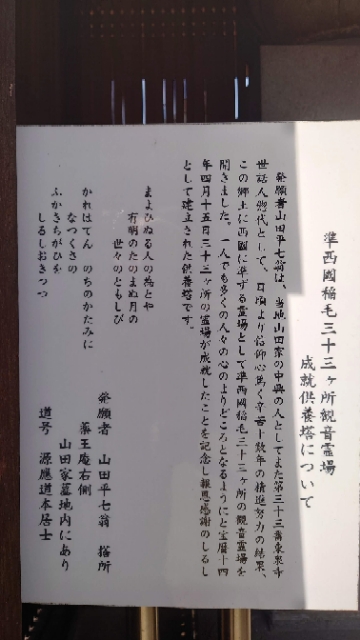 準西國稲毛三十三ヶ所観音霊場
成就供養塔について
発願者山田平七翁は、当地山田家の中興の人としてまた第三十三番東泉寺
世話人惣代として、日頃より信仰心篤く辛苦十数年の精進努力の結果、
この郷土に西國に準ずる霊場として準西國稲毛三十三ヶ所の観音霊場を
開きました。一人でも多くの人々の心のよりどころとなるようにと宝暦十四
年四月十五日三十三ヶ所の霊場が成就したことを記念し報恩感謝のしるし
として建立された供養塔です。
まよひぬる人の為とや
有明のたのまぬ月の
世々のともしび
かれはてん のちのかたみに
なつくさの
ふかきちがひを
しるしおきつつ
発願者 山田平七翁 墓所
薬王庵右側
山田家墓地内にあり
道号 源應道本居士